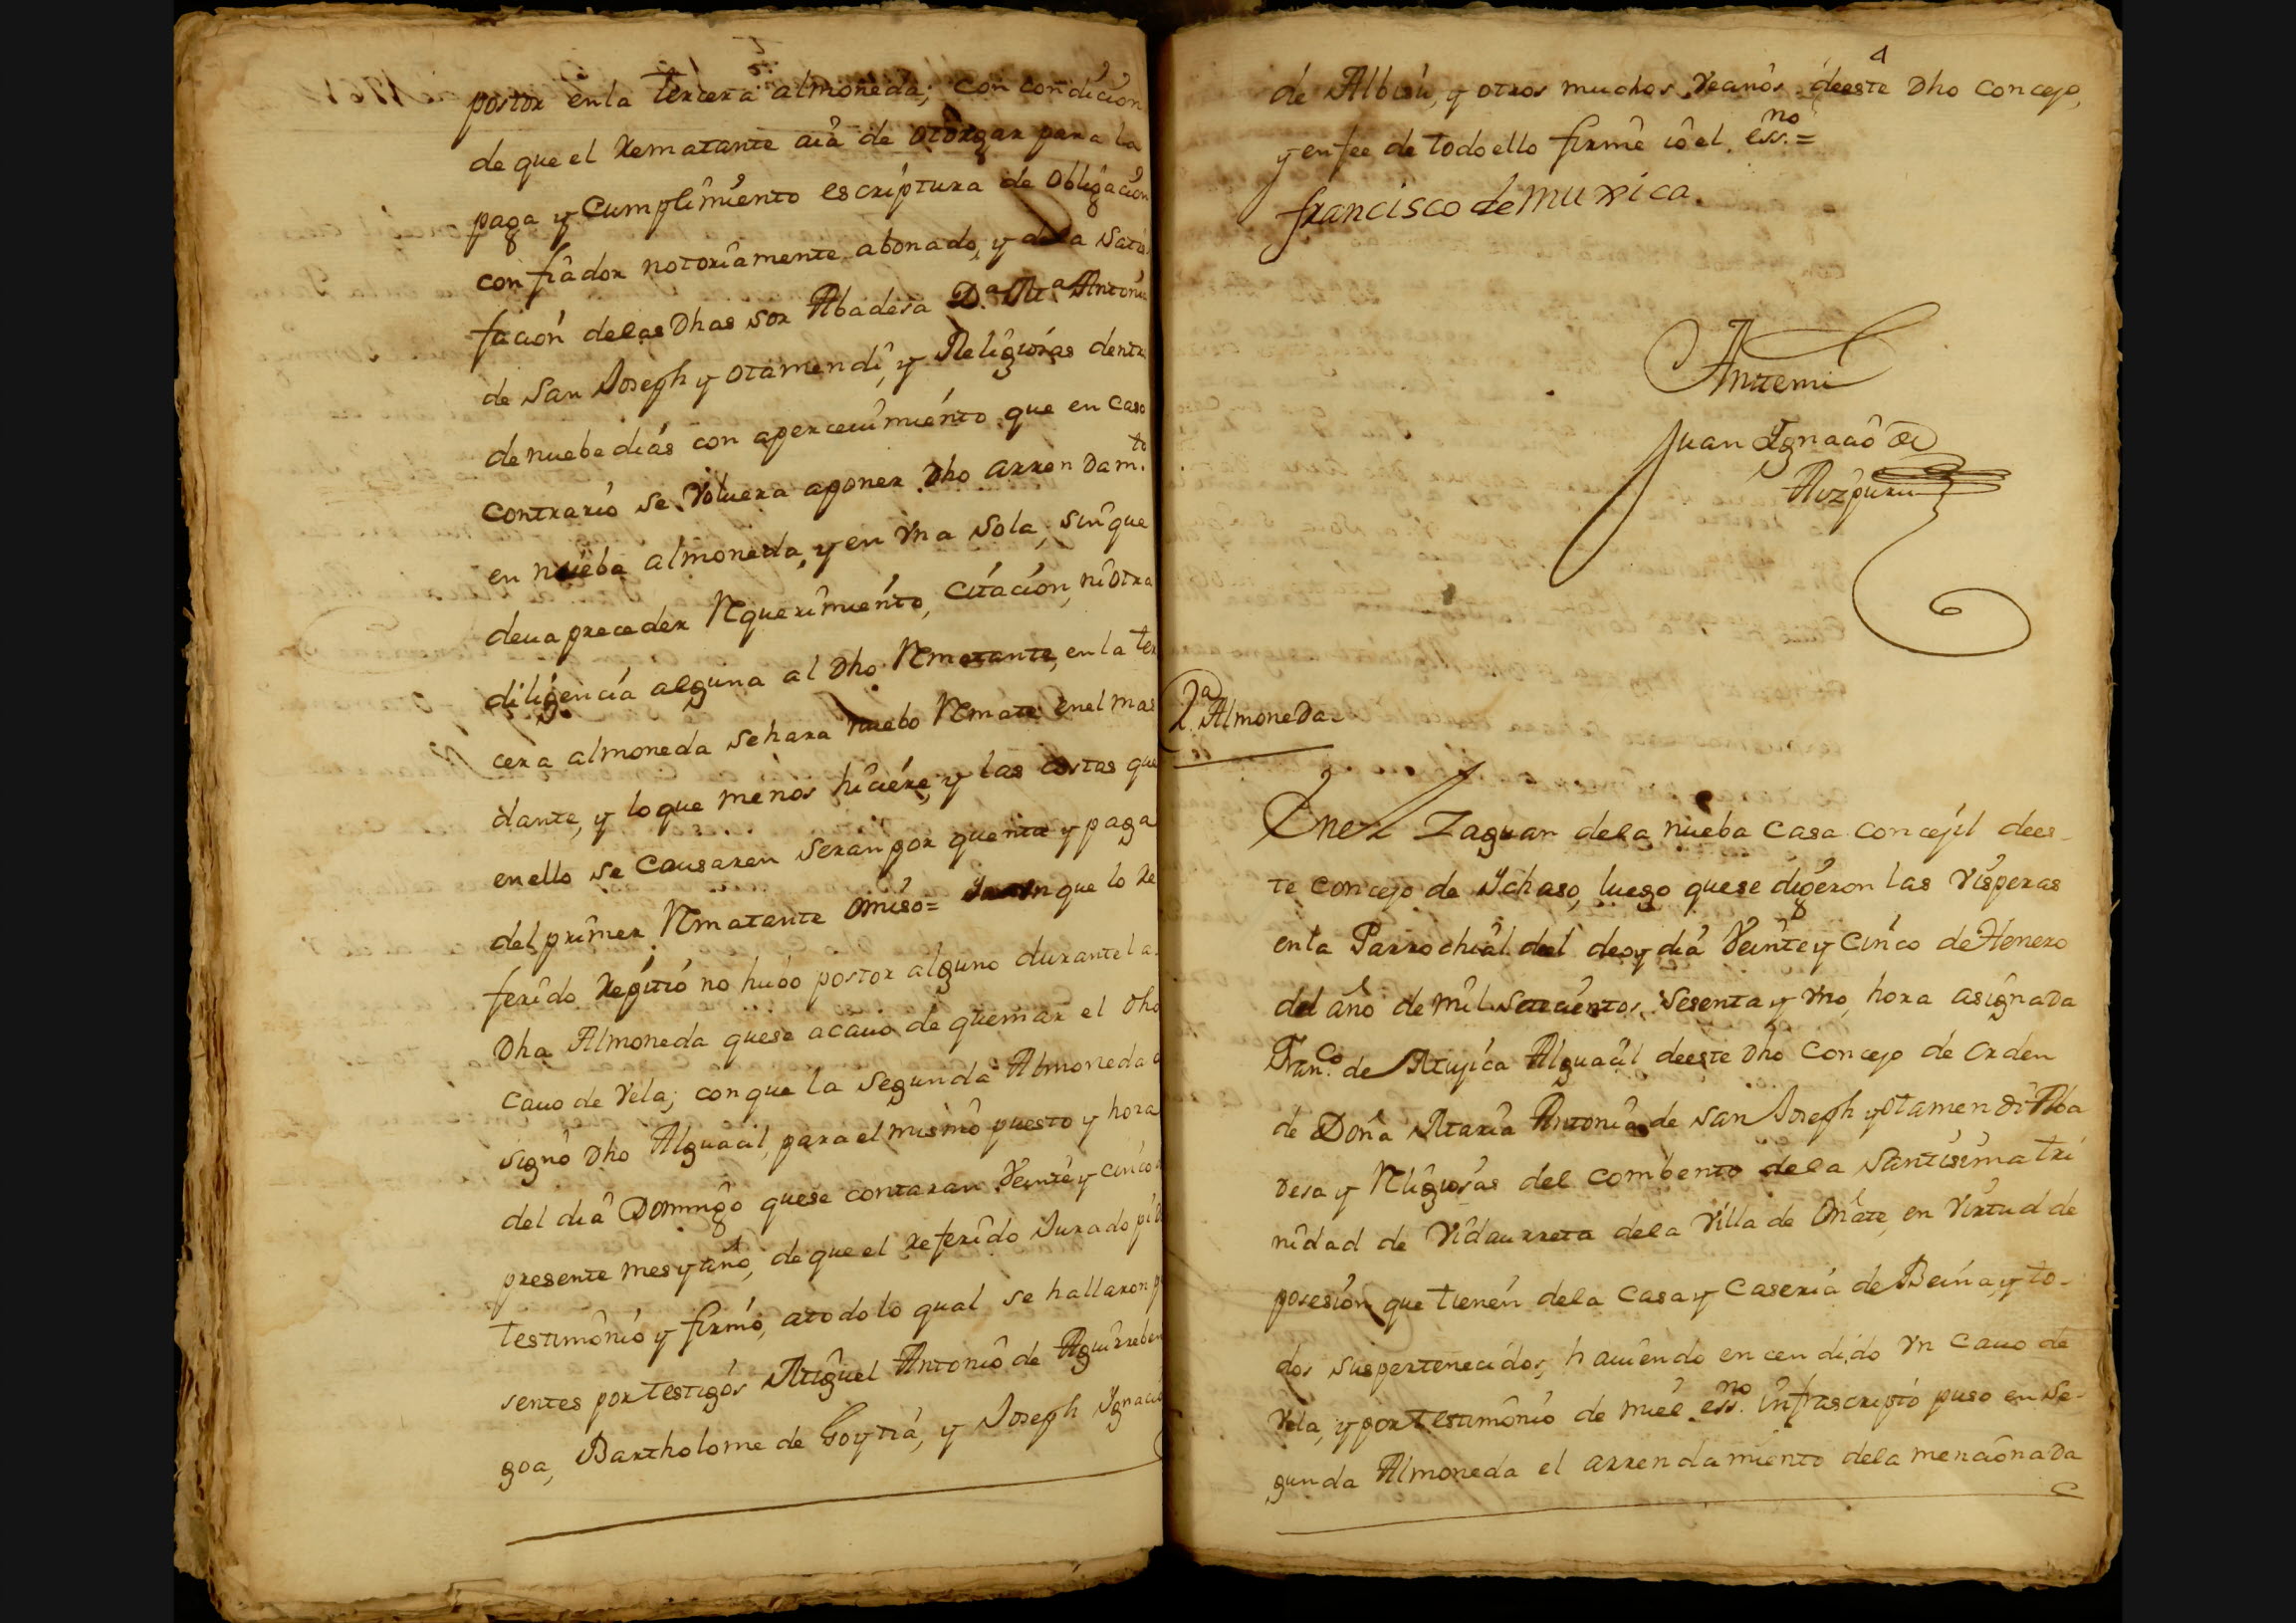 postor en la tercera almoneda; con condicion
de que el Rematante aia de otorgar para la
paga y Cumplimiento escriptura de obligacion
con fiador notoriamente abonado, y de la Satis
facion de las Dhas Sor Abadesa D.ª M.ª Antonia
de San Joseph y otamendi, y Religiosas dentro
de nuebe dias con apercevimiento que en caso
contrario se Voluera aponer Dho arrendam.to
en nueba almoneda, y en Vna Sola, sin que
deua preceder Requerimiento, Citacion, ni otra
diligencia alguna al Dho Rematante, en la ter
cera almoneda se hara nuebo Remate en el mas
dante, y lo que menos hiciere, y las costas que
en ello se Causaren seran por quenta y paga
del primer Rematante omiso= que lo Re
ferido Repitió no huuo postor alguno durante la
Dha Almoneda que se acauo de quemar el Dho
Cauo de Vela; con que la Segunda Almoneda a
signó Dho Alguacil, para el mismo puesto y hora
del dia Domingo que se contaran Veinte y cinco
presente mes y año, de que el referido Jurado pidio
testimonio y firmó, a todo lo qual se hallaron p
sentes por testigos Miguel Antonio de Aguirreben
goa, Bartholome de Goytia, y Joseph Ygnacio
4
de Albisu, y otros muchos Vecinos de este Dho Concejo,
y en fee de todo ello firmé io el ess.no=
francisco de muxica.
Antemi
Juan Ygnacio de
Aizpuru
2.ª Almoneda
En el Zaguan de la nueba Casa Concejil dees-
te concejo de Ychaso, luego que se digeron las Visperas
en la Parrochial del deoy dia Veinte y Cinco de Henero
del año de mil Setecientos, Sesenta y Vno, hora asignada
Fran.co de Mujica Alguacil deeste Dho Concejo de orden
de Doña Maria Antonia de San Joseph y Otamendi Aba
desa y Religiosas del combento de la Santisima tri
nidad de Vidaurreta de la Villa de Oñate, en Virtud de
posesion que tienen de la Casa y Caseria de Beina, y to-
dos sus pertenecidos, hauiendo encendido Vn Cauo de
Vela, y por testimonio de mi el ess.no infrascripto puso en Se-
gunda Almoneda el arrendamiento de la mencionada